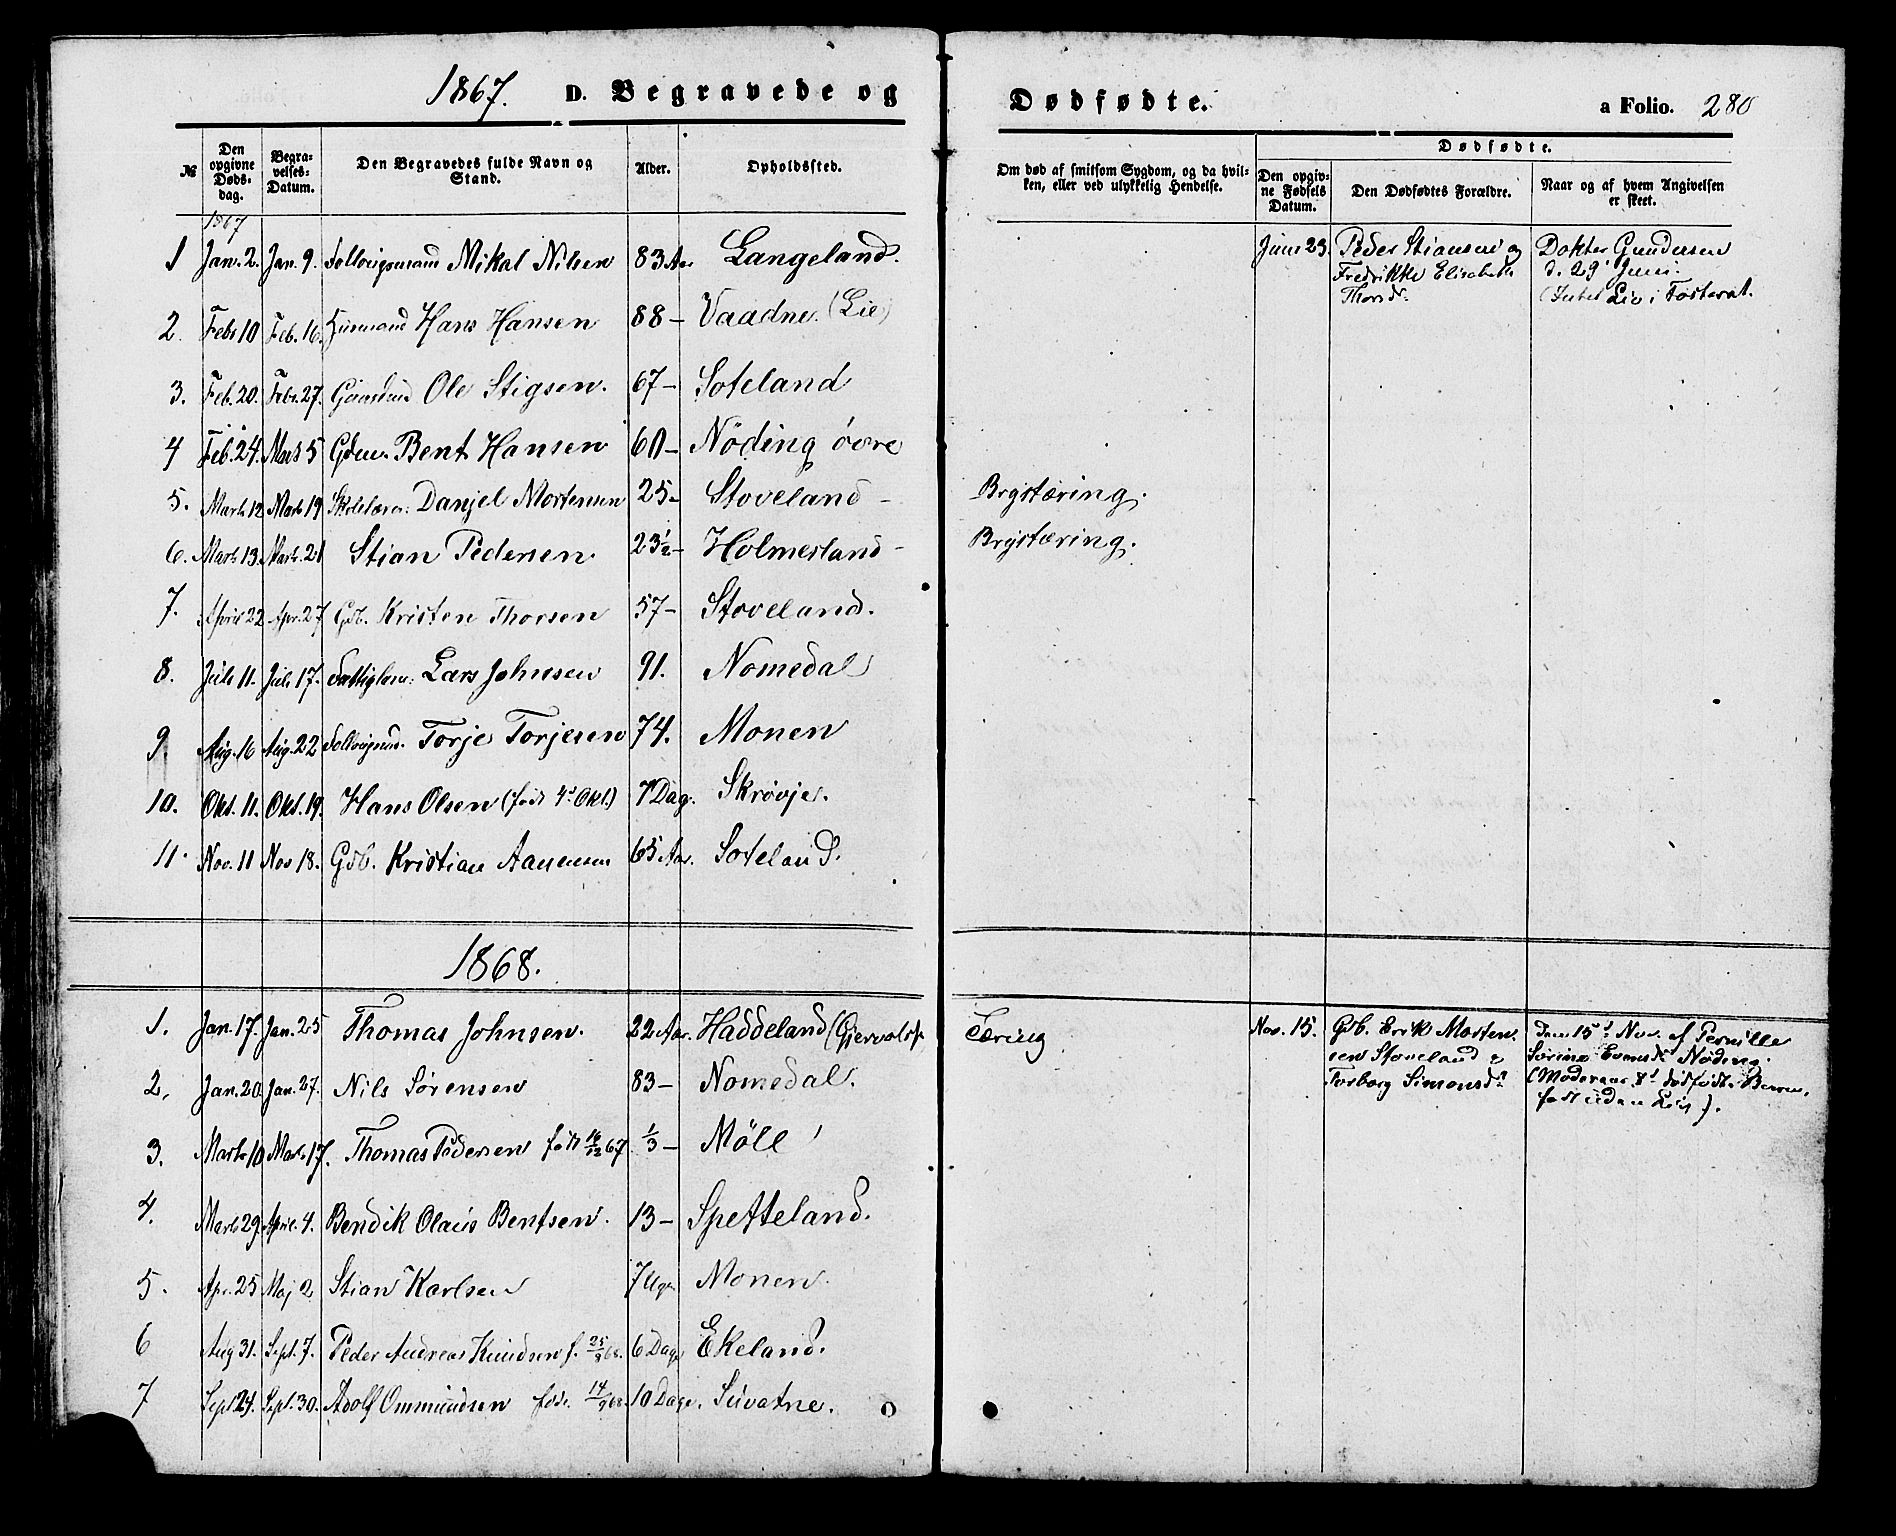 1867. D. Begravede og
Dødfødte.
a Folio. 280
№
Den opgivne Døds-dag.
Begra-velses-Datum.
Den Begravedes fulde Navn og Stand.
Alder.
Opholdssted.
Om død af smitsom Sygdom, og da hvil-ken, eller ved ulykkelig Hendelse.
Dødfødte.
Den opgiv-ne Fødsels Datum.
Den Dødfødtes Forældre.
Naar og af hvem Angivelsen er skeet.
1867
1 Jan. 2. Jan. 9. Mikal Nilsen 83 Aar Langeland.
Juni 23 Peder Stiansen og Dokter Gundersen
Fredrikke Elisabeth d. 29 Juni.
Thorsd. (Intet Liv i Fosteret.
2. Feb. 10 Feb. 16. Husmand Hans Hansen 88 – Vaadne (Lie)
3. Feb. 20. Feb. 27. Ole Stigsen. 67 – Soteland
4 Feb. 24. Marts 5 Gdm. Bent Hansen 60 – Nöding övre
5. Marts 12 Marts 19 Skolelærer: Danjel Mortensen 25 – Stoveland – Brysttæring.
6. Marts 13. Marts 21 Stian Pedersen 23½ – Holmesland – Brystæring.
7. April 22 Apr. 27 Gdb. Kristen Thorsen 57 – Stoveland.
8. Juli 11. Juli 17. Fattiglem: Lars Johnsen 91. Nomedal
9. Aug. 16 Aug. 22 Torje Torjesen 74. Monen
10. Okt. 11. Okt. 19. Hans Olsen (född 4d Okt.) 7 Dag. Skrövje.
11. Nov. 11 Nov 18. Gdb. Kristian Aanensen 65 Aar. Soteland.
1868.
1. Jan. 17. Jan. 25 Thomas Johnsen. 22 Aar. Haddeland (Gjervoldsp. Tæring
Nov. 15. Gdb. Erik Morten- Dem 15d Nov. af Pernille
sen Stoveland & Sörine Evensd. Nöding.
Torborg Simonsdr (Moderens 8d dödfödte Barn,
födt uden Liv).
2. Jan. 20. Jan. 27. Nils Sørensen 83 – Nomedal.
3. Marts 10 Marts 17. Thomas Pedersen født 16/12 67. 1/3 – Möll
4. Marts 29. April. 4. Bendik Olaus Bentsen. 13 – Spetteland.
5. Apr. 25 Maj 2 Stian Karlsen 7 Uger Monen.
6 Aug 31. Sept. 7. Peder Andreas Knudsen f. 25/8 68. 6 Dage Ekeland.
7 Sept 24. Sept. 30. Adolf Ommundsen föd. 14/9 68. 10 Dage. Suvatne.